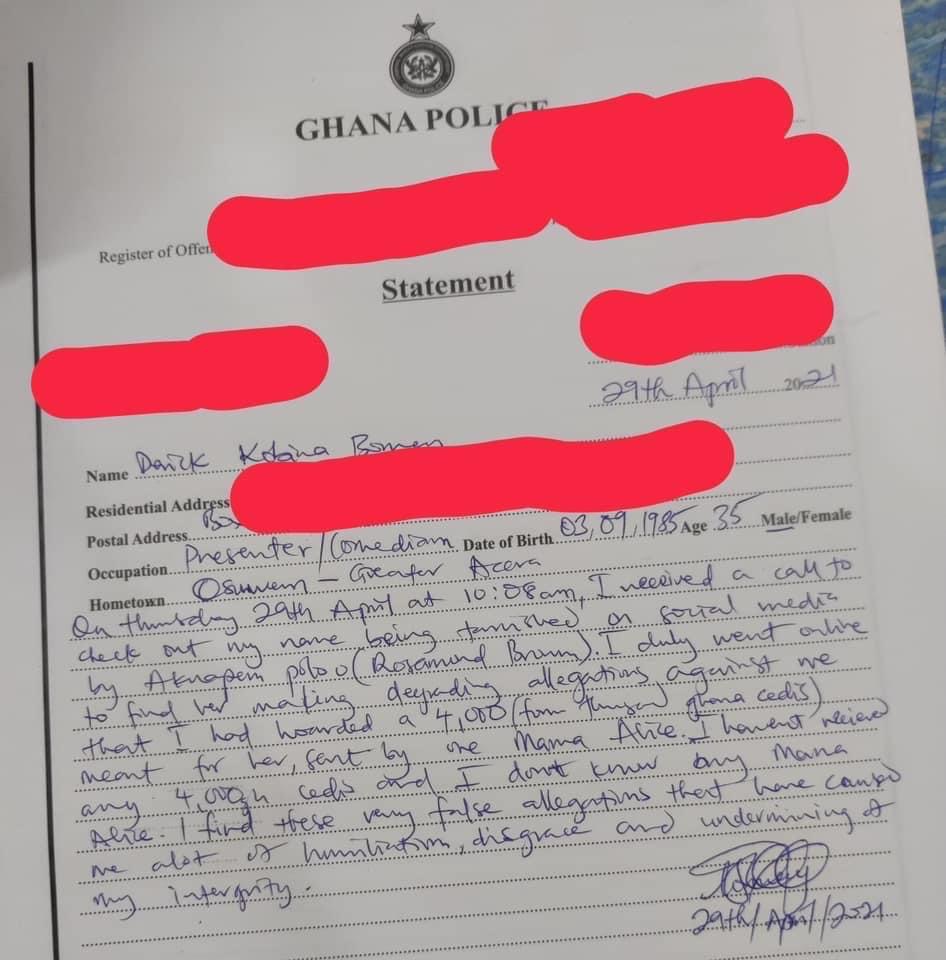 GHANA POLICE
Register of Offen
Statement
29th April 2021
Name Darick Kobina Bonney
Residential Address
Postal Address Box
Occupation Presenter/Comedian Date of Birth 03,09,1985 Age 35 Male/Female
Hometown Osuwem - Greater Accra
On thursday 29th April at 10:08am, I received a call to
check out my name being tarnished on social media
by Akuapem poloo (Rosamund Brown). I duly went online
to find her making degrading allegations against me
that I had hoarded a 4,000 (four thousand ghana cedis)
meant for her, sent by one Mama Alice. I havent recieved
any 4,000gh cedis and I don't know any Mama
Alice. I find these very false allegations that have caused
me alot of humiliation, disgrace and undermining of
my intergrity.
29th/April/2021